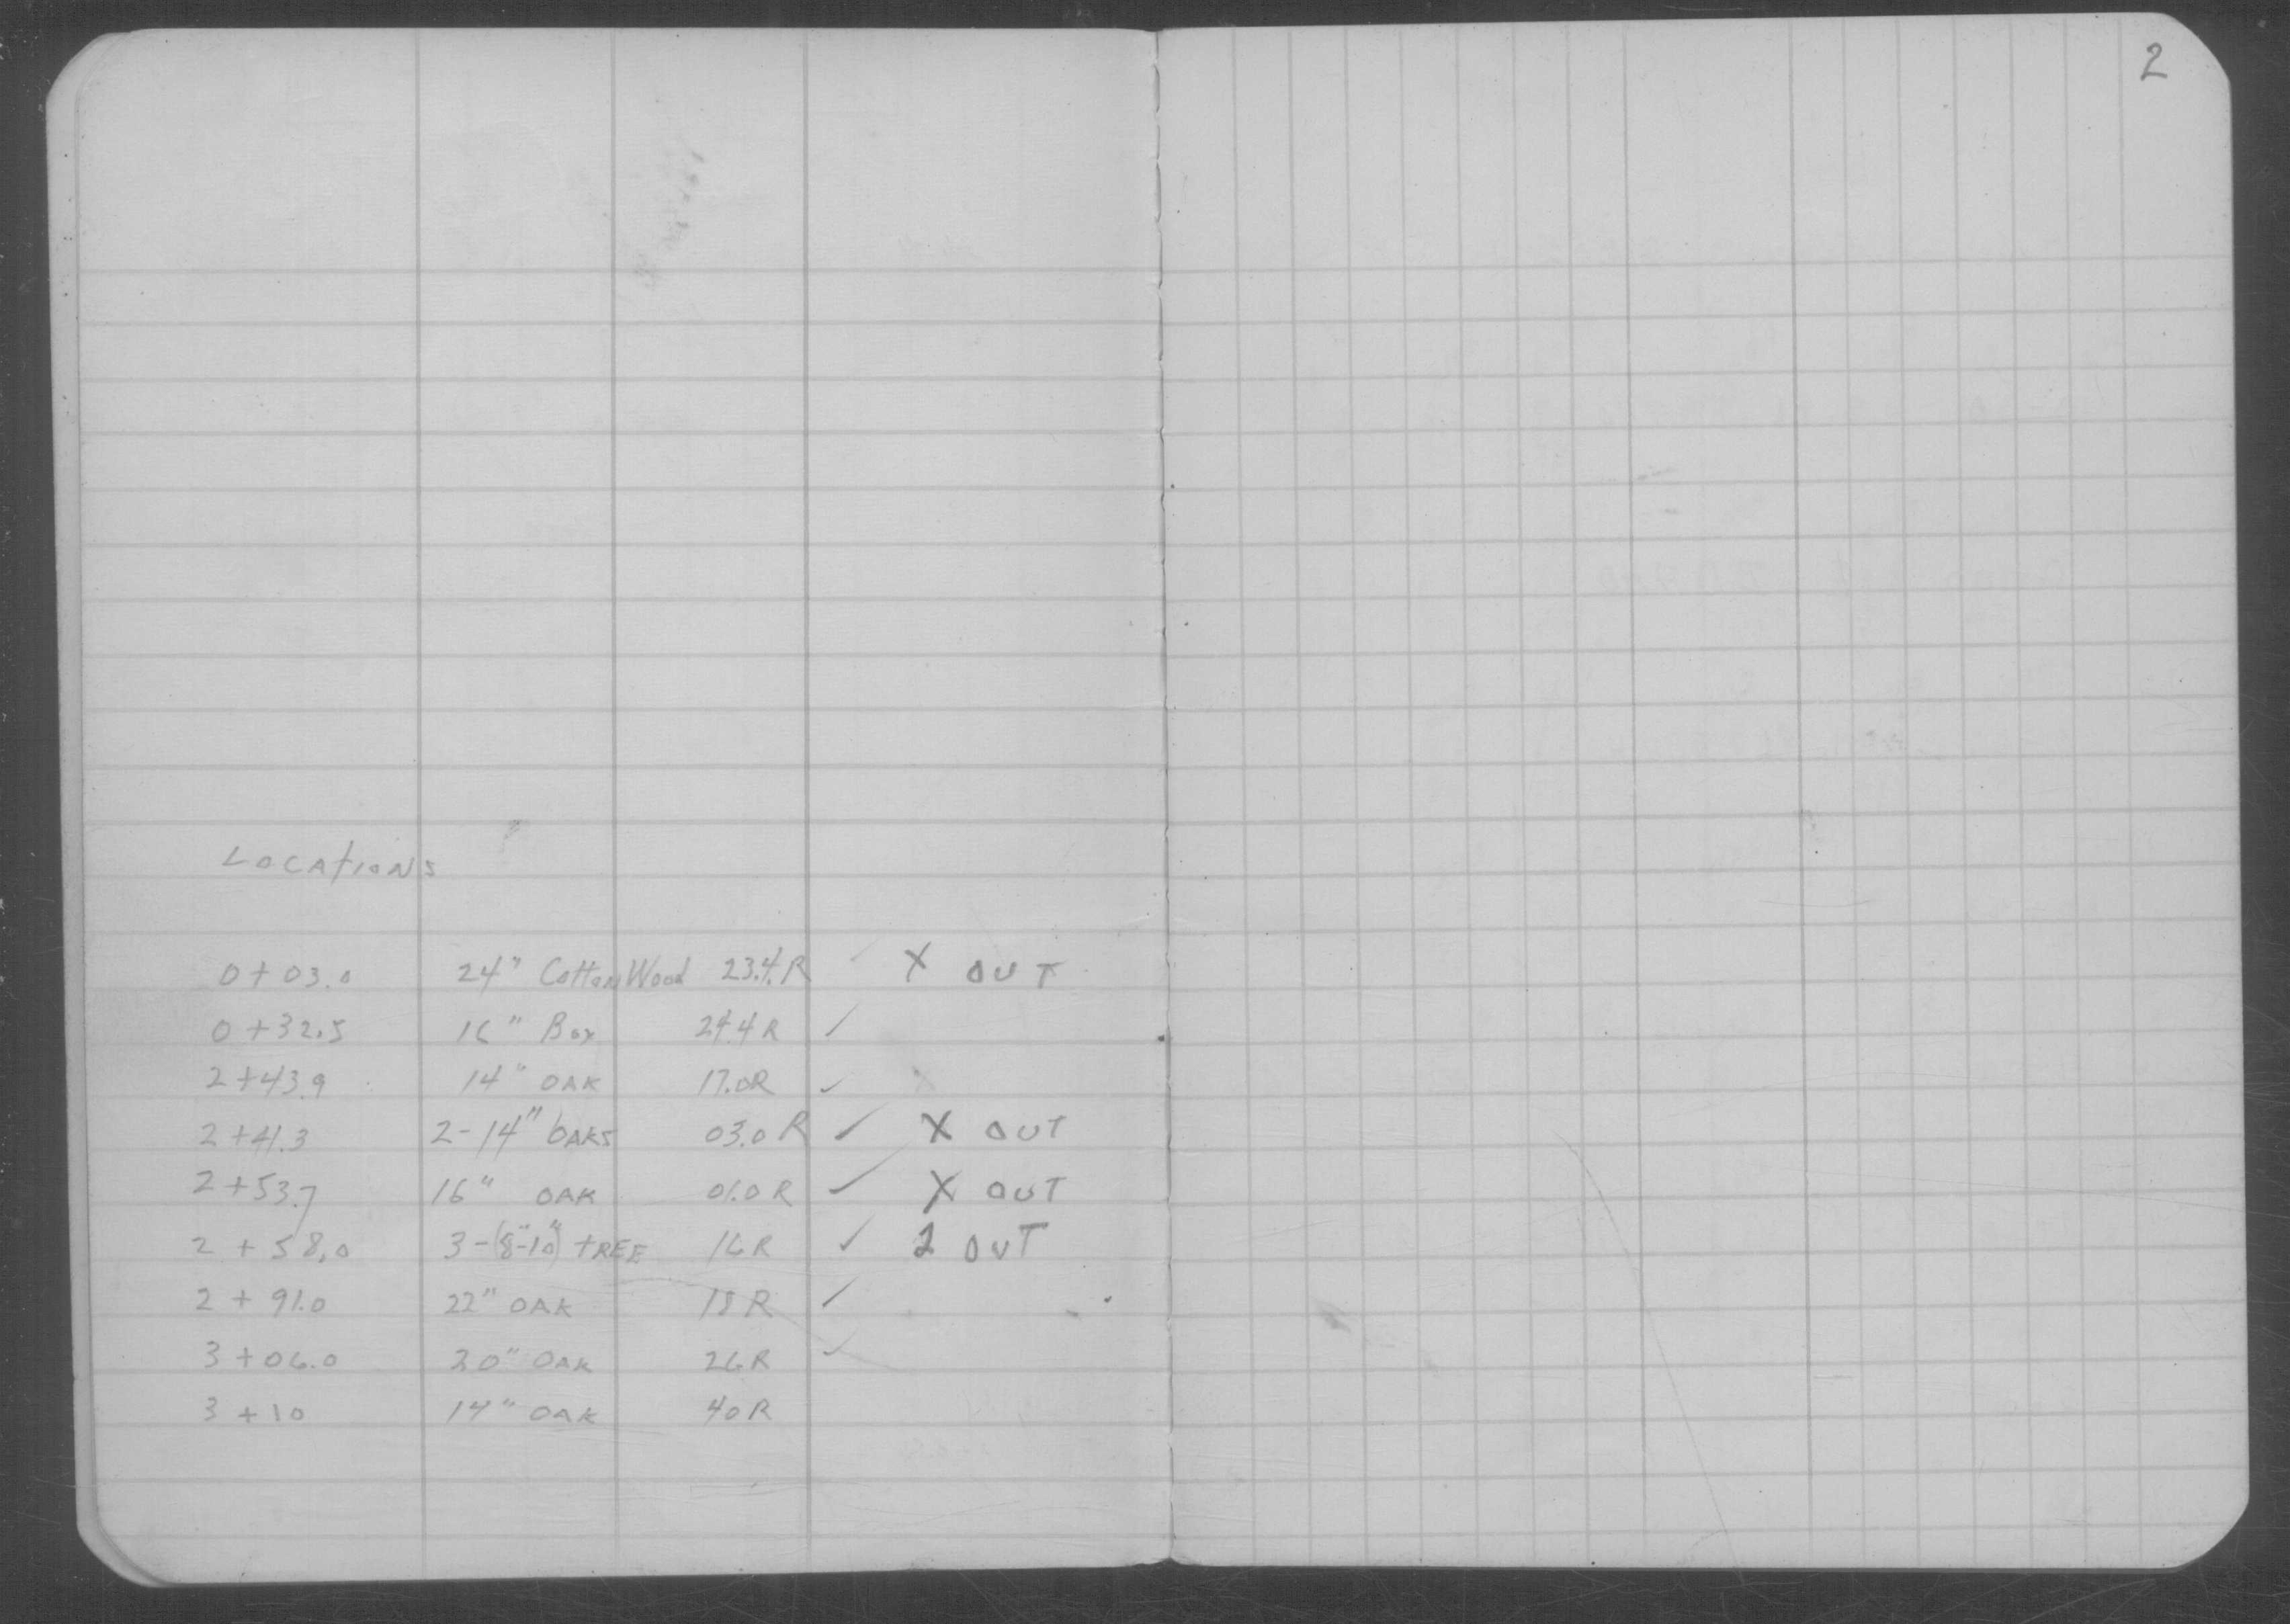 2
LOCATIONS
0+03.0 24" CottonWood 23.4 R ✓ X OUT
0+32.5 16" Box 24.4 R ✓
2+43.9 14" OAK 17.0R ✓
2+41.3 2-14" OAKS 03.0 R ✓ X OUT
2+53.7 16" OAK 01.0 R ✓ X OUT
2+58.0 3-(8"-10") TREE 16 R ✓ 2 OUT
2+91.0 22" OAK 18 R ✓
3+06.0 20" OAK 26 R ✓
3+10 14" OAK 40 R